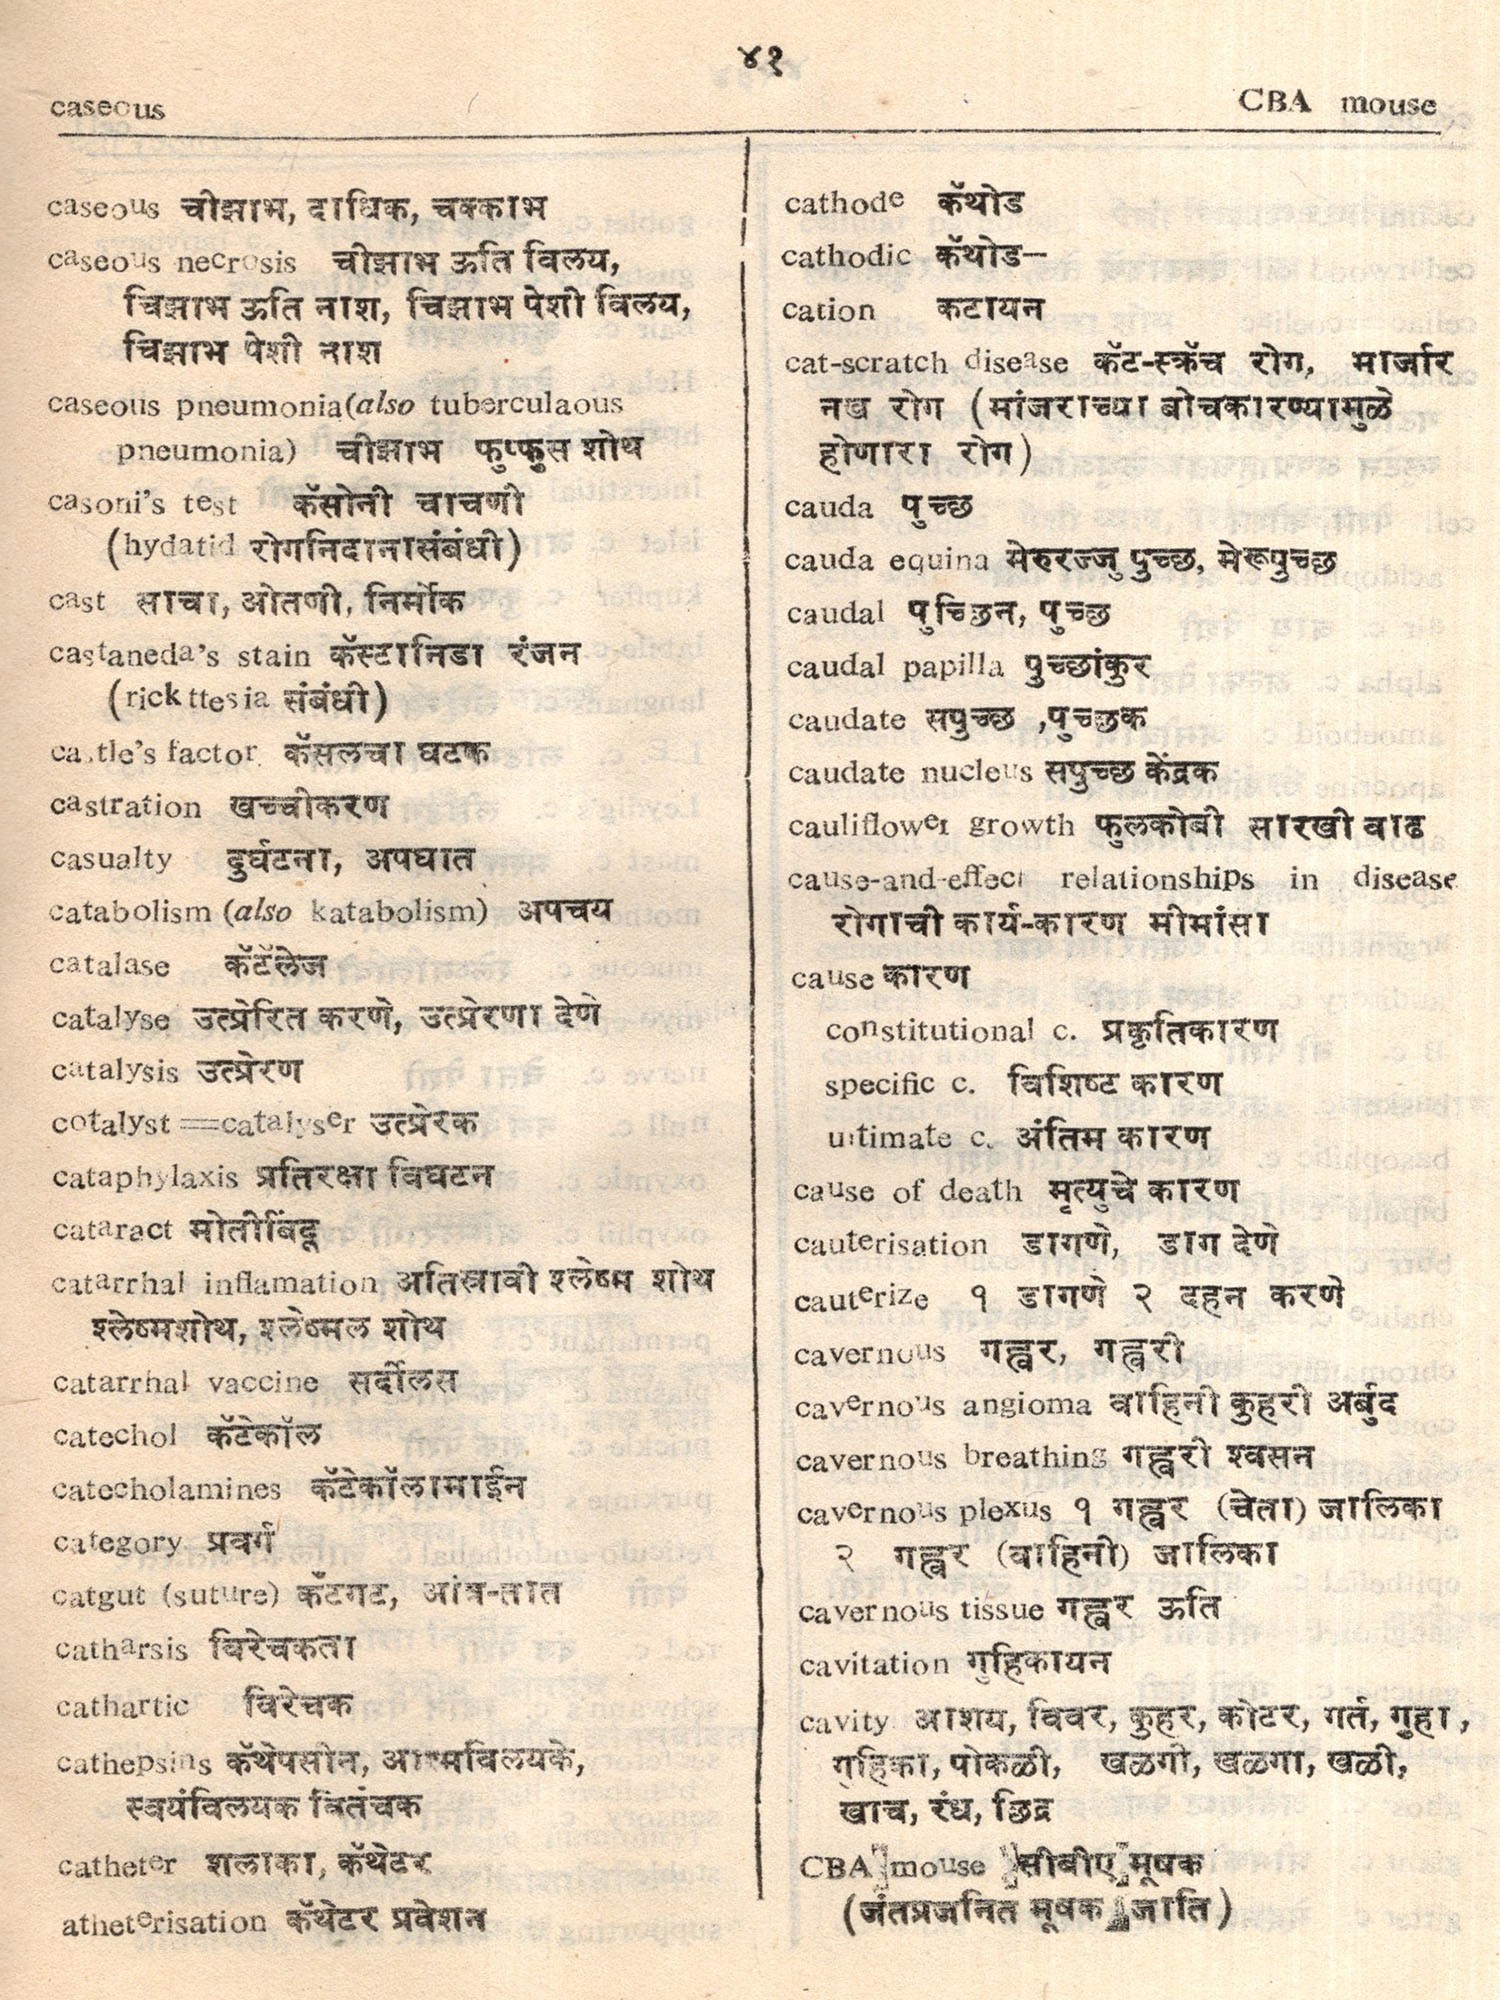 ४१
caseous
CBA mouse
caseous चीझाभ, दाधिक, चक्काभ
caseous necrosis चीझाभ ऊति विलय,
चिझाभ ऊति नाश, चिझाभ पेशी विलय,
चिझाभ पेशी नाश
caseous pneumonia(also tuberculaous
pneumonia) चीझाभ फुप्फुस शोथ
casoni's test कॅसोनी चाचणी
(hydatid रोगनिदानासंबंधी)
cast साचा, ओतणी, निर्मोक
castaneda's stain कॅस्टानिडा रंजन
(rickttesia संबंधी)
castle's factor कॅसलचा घटक
castration खच्चीकरण
casualty दुर्घटना, अपघात
catabolism (also katabolism) अपचय
catalase कॅटॅलेज
catalyse उत्प्रेरित करणे, उत्प्रेरणा देणे
catalysis उत्प्रेरण
cotalyst==catalyser उत्प्रेरक
cataphylaxis प्रतिरक्षा विघटन
cataract मोतीबिंदू
catarrhal inflamation अतिस्रावी श्लेष्म शोथ
श्लेष्मशोथ, श्लेष्मल शोथ
catarrhal vaccine सर्दीलस
catechol कॅटेकॉल
catecholamines कॅटेकॉलामाईन
category प्रवर्ग
catgut (suture) कॅटगट, आंत्र-तात
catharsis विरेचकता
cathartic विरेचक
cathepsins कॅथेपसीन, आत्मविलयके,
स्वयंविलयक वितंचक
catheter शलाका, कॅथेटर
atheterisation कॅथेटर प्रवेशन
cathode कॅथोड
cathodic कॅथोड—
cation कटायन
cat-scratch disease कॅट-स्क्रॅच रोग, मार्जार
नख रोग (मांजराच्या बोचकारण्यामुळे
होणारा रोग)
cauda पुच्छ
cauda equina मेरुरज्जु पुच्छ, मेरूपुच्छ
caudal पुच्छिन, पुच्छ
caudal papilla पुच्छांकुर
caudate सपुच्छ ,पुच्छक
caudate nucleus सपुच्छ केंद्रक
cauliflower growth फुलकोबी सारखी वाढ
cause-and-effect relationships in disease
रोगाची कार्य-कारण मीमांसा
cause कारण
constitutional c. प्रकृतिकारण
specific c. विशिष्ट कारण
ultimate c. अंतिम कारण
cause of death मृत्युचे कारण
cauterisation डागणे, डाग देणे
cauterize १ डागणे २ दहन करणे
cavernous गह्वर, गह्वरी
cavernous angioma वाहिनी कुहरी अर्बुद
cavernous breathing गह्वरी श्वसन
cavernous plexus १ गह्वर (चेता) जालिका
२ गह्वर (वाहिनी) जालिका
cavernous tissue गह्वर ऊति
cavitation गुहिकायन
cavity आशय, विवर, कुहर, कोटर, गर्त, गुहा,
गुहिका, पोकळी, खळगी, खळगा, खळी,
खाच, रंध्र, छिद्र
CBA mouse सीबीए मूषक
(जंतप्रजनित मूषक जाति)